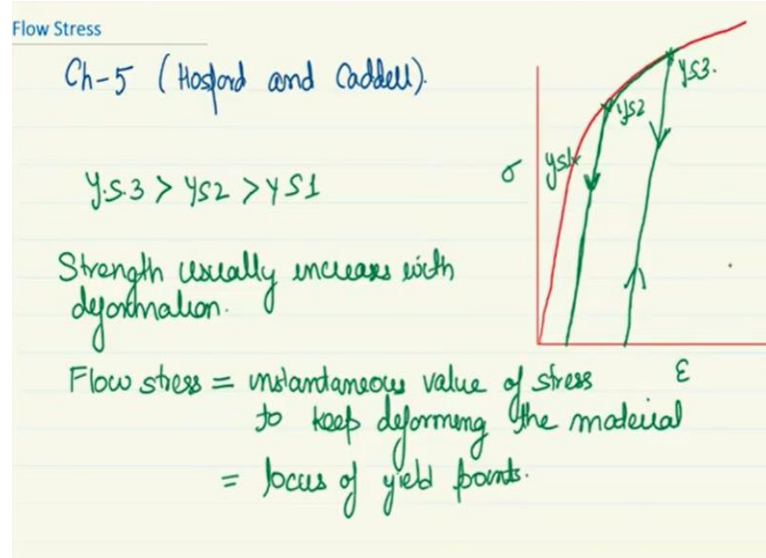 Flow Stress
Ch-5 (Hosford and Caddell).
YS3.
YS2
σ YS1
Y.S.3 > YS2 > YS1
Strength usually increases with
deformation.
ε
Flow stress = instantaneous value of stress
to keep deforming the material
= locus of yield points.